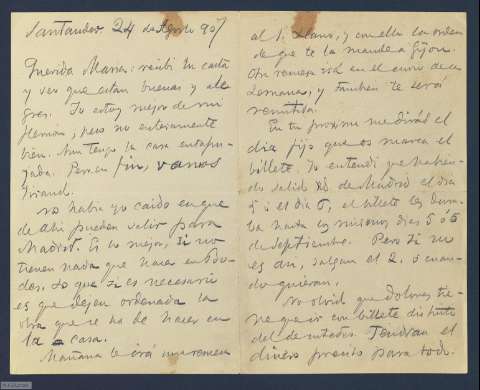 Santander 24 de Agosto 907
Querida Maria: recibí tu carta
y veo que están buenas y ale
gres. Yo estoy mejor de mi
flemón, pero no enteramente
bien. Aun tengo la cara entrapa
jada. Pero en fin, vamos
tirando.
No había yo caido en que
de ahí pueden salir para
Madrid. Es lo mejor, si no
tienen nada que hacer en
Lo que sí es necesario
es que dejen ordenada la
obra que se ha de hacer en
la casa.
Mañana te irá una remesa
al S. Llano, y con ella la orden
de que te la mande a Gijon.
Otra remesa irá en el curso de la
semana, y tambien te será
remitida.
En tu próxima me dirás el
día fijo que os marca el
billete. Yo entendí que habien
do salido de Madrid el día
5 ó el día 6, el billete les dura
ba hasta los mismos días 5 ó 6
de Septiembre. Pero si no
es así, salgan el 2, ó cuan
do quieran.
No olvid que Dolores tie
ne que ir con billete distinto
del de ustedes. Tendrán el
dinero pronto para todo.